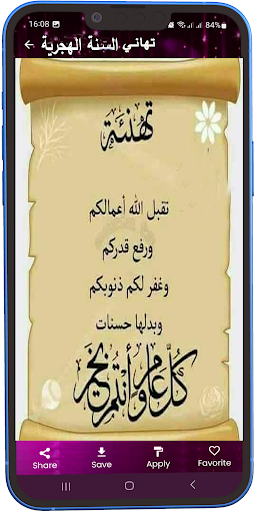 16:08 84%
← تهاني السنة الهجرية
تهنئة
تقبل الله أعمالكم
ورفع قدركم
وغفر لكم ذنوبكم
وبدلها حسنات
كل عام وأنتم بخير
Share Save Apply Favorite